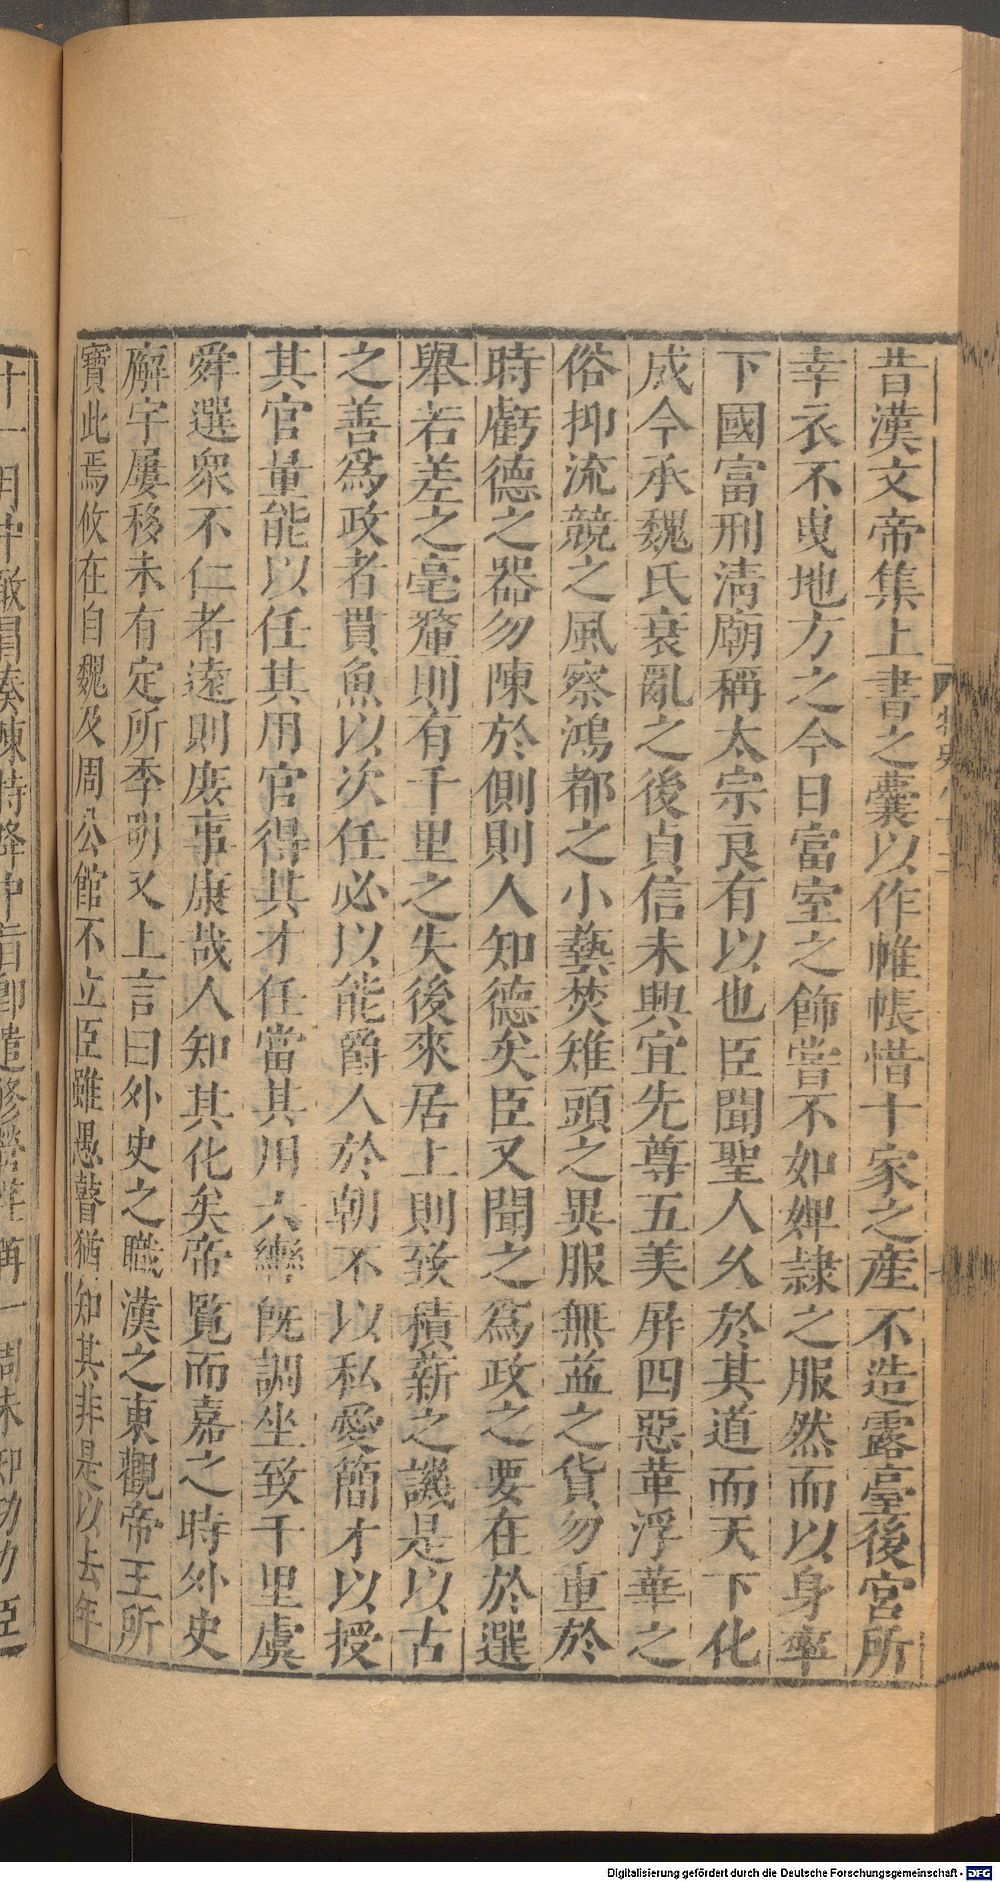 昔漢文帝集上書之囊以作帷帳惜十家之產不造露臺後宮所
幸衣不曳地方之今日富室之飾嘗不如婢隸之服然而以身率
下國富刑清廟稱太宗良有以也臣聞聖人久於其道而天下化
成今承魏氏衰亂之後貞信未興宜先尊五美屏四惡革浮華之
俗抑流競之風察鴻都之小藝焚雉頭之異服無益之貨勿重於
時虧德之器勿陳於側則人知德矣臣又聞之為政之要在於選
舉若差之毫釐則有千里之失後來居上則致積薪之譏是以古
之善爲政者貫魚以次任必以能爵人於朝不以私愛簡才以授
其官量能以任其用官得其才任當其用六轡既調坐致千里虞
舜選衆不仁者遠則庶事康哉人知其化矣帝覽而嘉之時外史
廨宇屢移未有定所季明又上言曰外史之職漢之東觀帝王所
寶此焉攸在自魏及周公館不立臣雖愚瞽猶知其非是以去年
十一月中敢冒奏陳特降中旨即遣修營荏苒一周未知功力臣
Digitalisierung gefördert durch die Deutsche Forschungsgemeinschaft - DFG